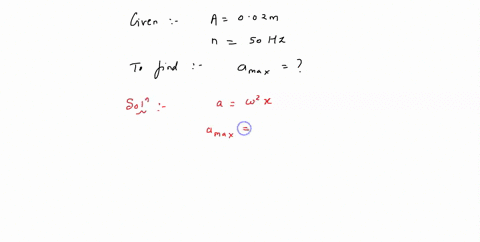 Given :- A = 0.02m
n = 50 Hz
To find :- amax = ?
Solⁿ :- a = ω²x
amax =